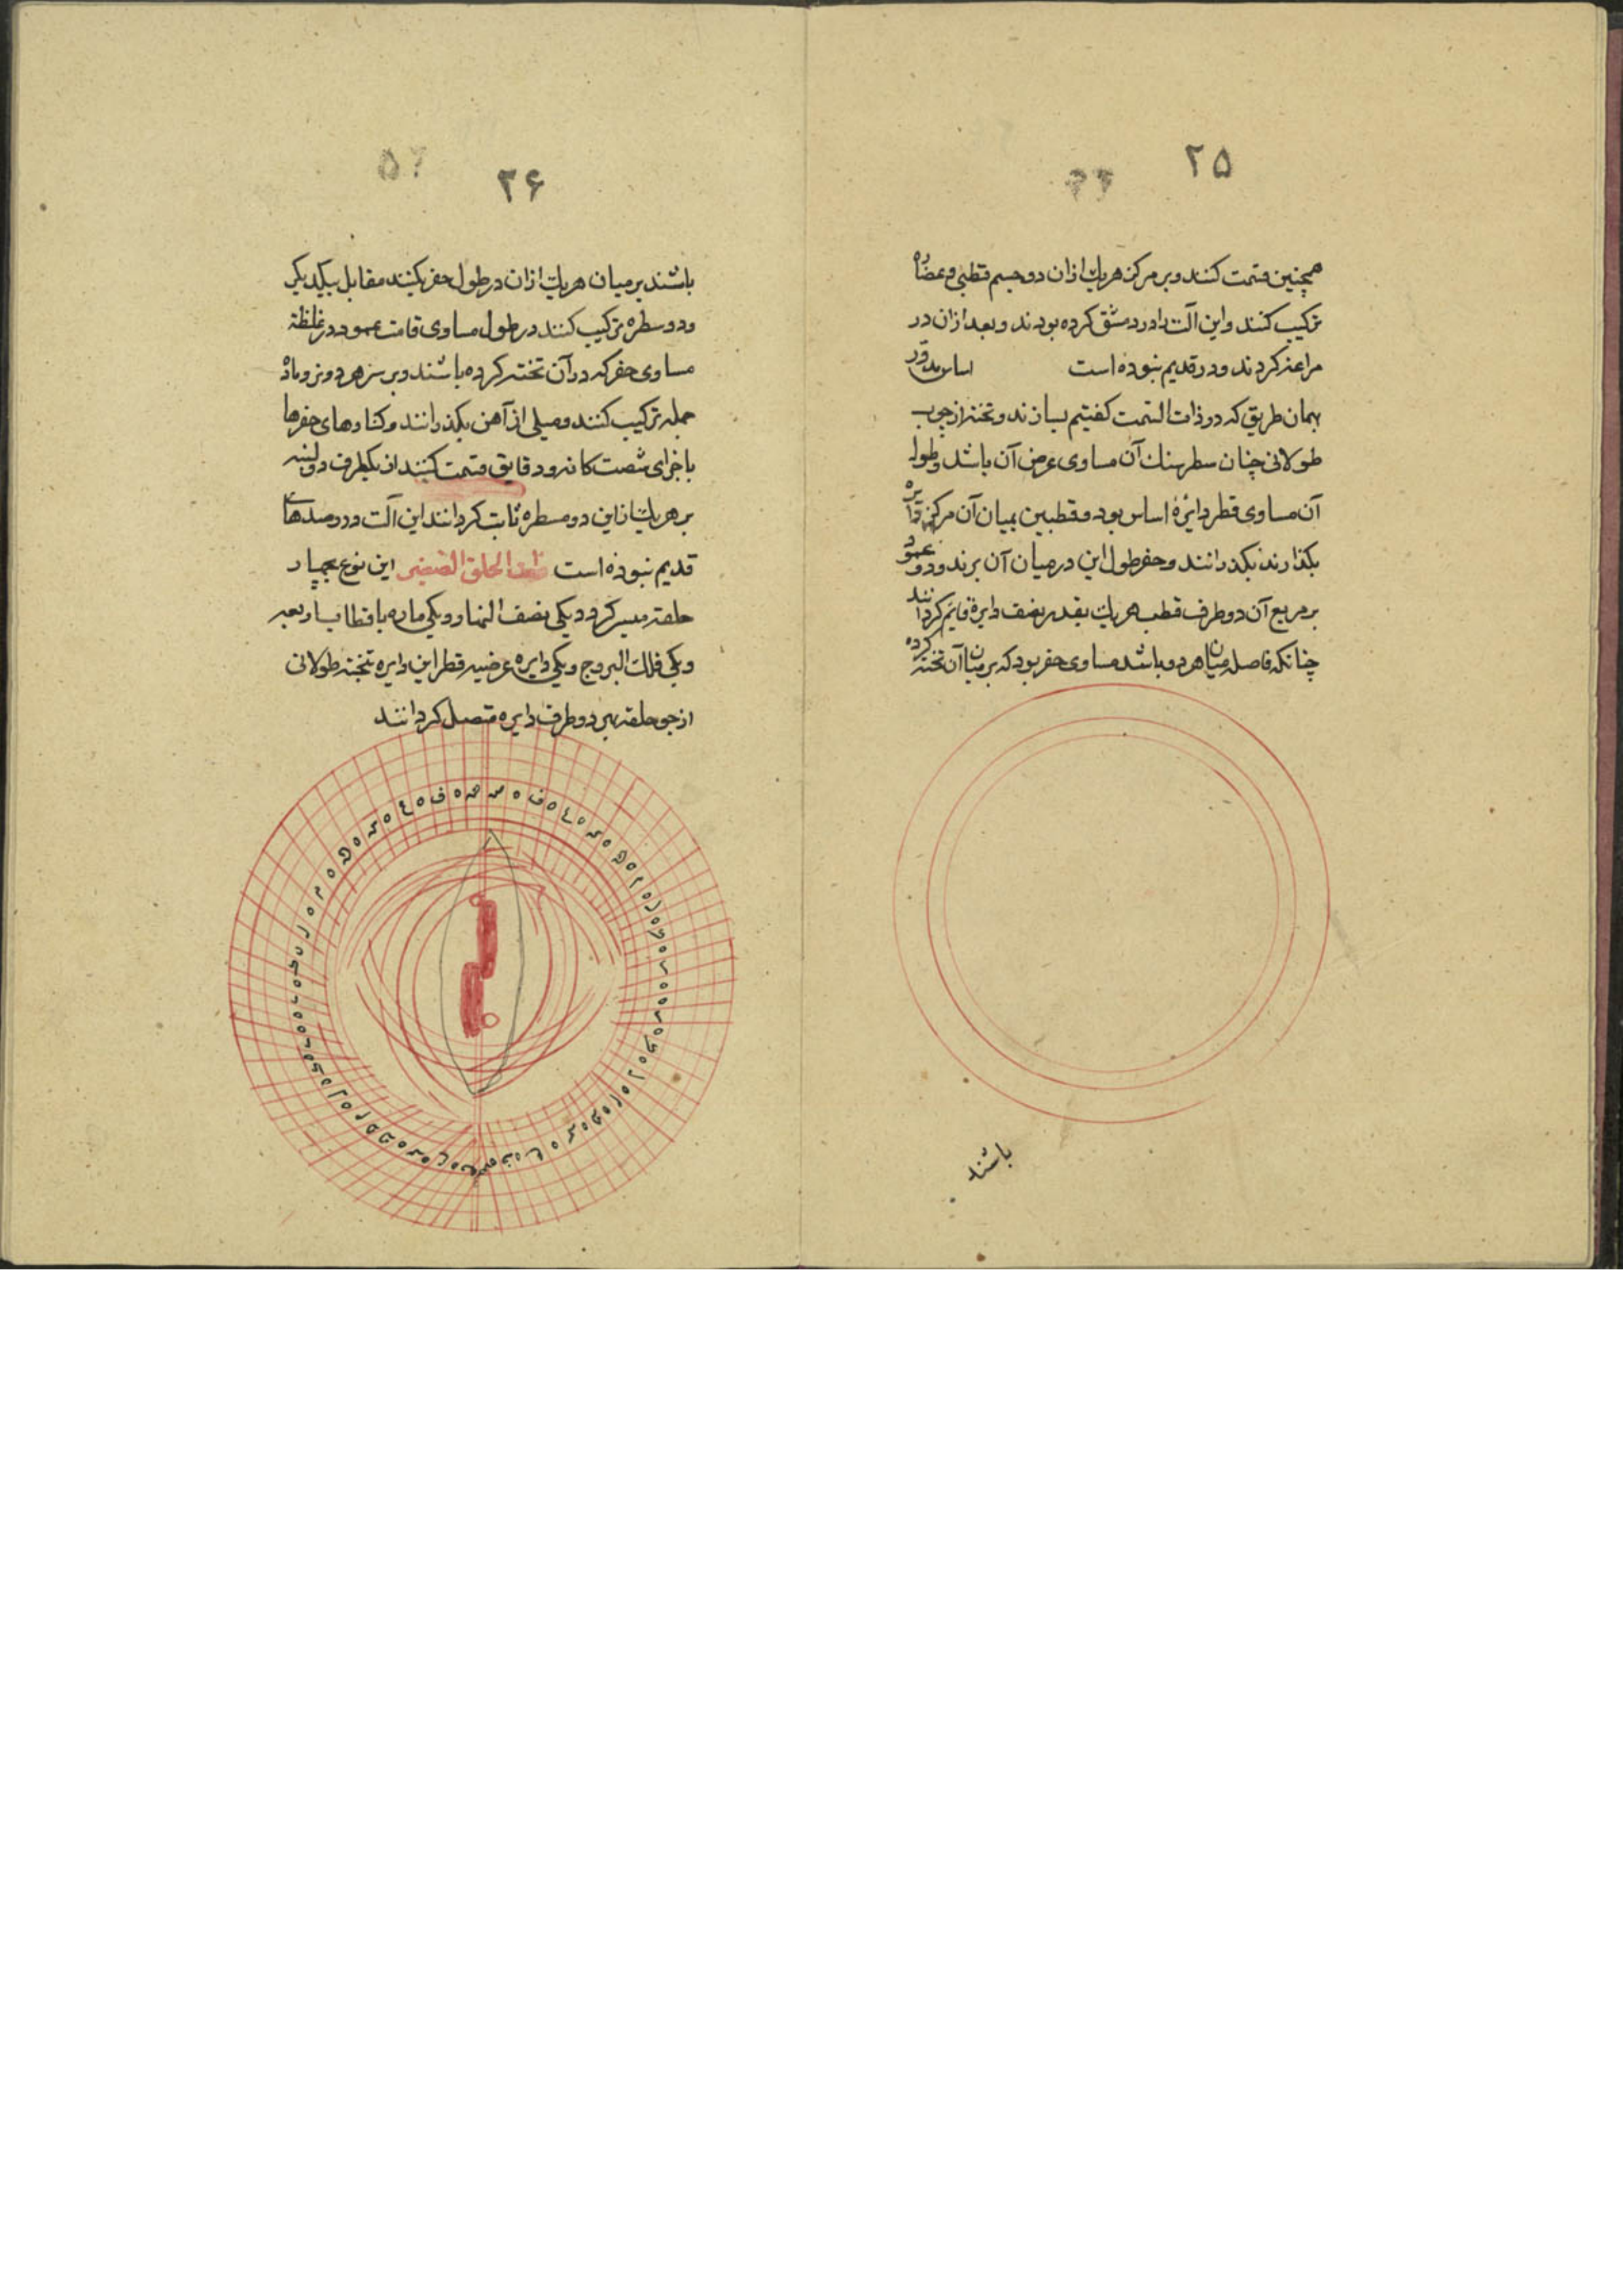 ۲۵
همچنین قسمت کنند و بر مرکز هریك ازان دو جسم قطبی و عضاده
ترکیب کنند و این آلت را در دمشق کرده بودند و بعد ازان در
مراغه کردند و در قدیم نبوده است اساس مدور
بهمان طریق که در ذات السمت کفتیم بسازند و تخته از چوب
طولانی چنان سطر هنك آن مساوی عرض آن باشد و طول
آن مساوی قطر دایرهٔ اساس بود و قطبین بمیان آن مرکز دایره
بکذارند بکذرانند و حفر طول این در میان آن برند و دو عمود
بر مربع آن دو طرف قطب هریك بقدر نصف دایرهٔ قایم کردانند
چنانکه فاصله میان هر دو باشد مساوی حفر بود که بر میان آن تخته کرده
باشند
۲۶
باشند بر میان هریك ازان در طول حفر بکنند مقابل یکدیکر
و دو مسطره ترکیب کنند در طول مساوی قامت عمود در غلظة
مساوی حفر که در آن تخته کرده باشند و بر سر هر دو نر و ماده
جمله ترکیب کنند و میلی از آهن بکذرانند و کنارهای حفرها
باجزای شصت کانه و دقایق قسمت کنند از یکطرف دو لبنه
بر هریك ازین دو مسطره ثابت کردانند این آلت در رصدهای
قدیم نبوذه است ذات الحلق الصغیر این نوع بچهار
حلقه میسر کردد یکی نصف النهار و یکی ماره باقطاب اربعه
و یکی فلك البروج و یکی دایره عرضیه قطر این دایره تخته طولانی
از جو حلقه بهر دو طرف دایره متصل کردانند